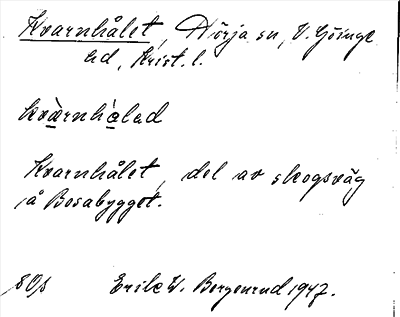 Kvarnhålet, Dörja sn, V. Göinge
hd, Krist. l.
kvàrnhàlad
Kvarnhålet, del av skogsväg
å Bosabygget.
Erik W. Bergenrud 1947.